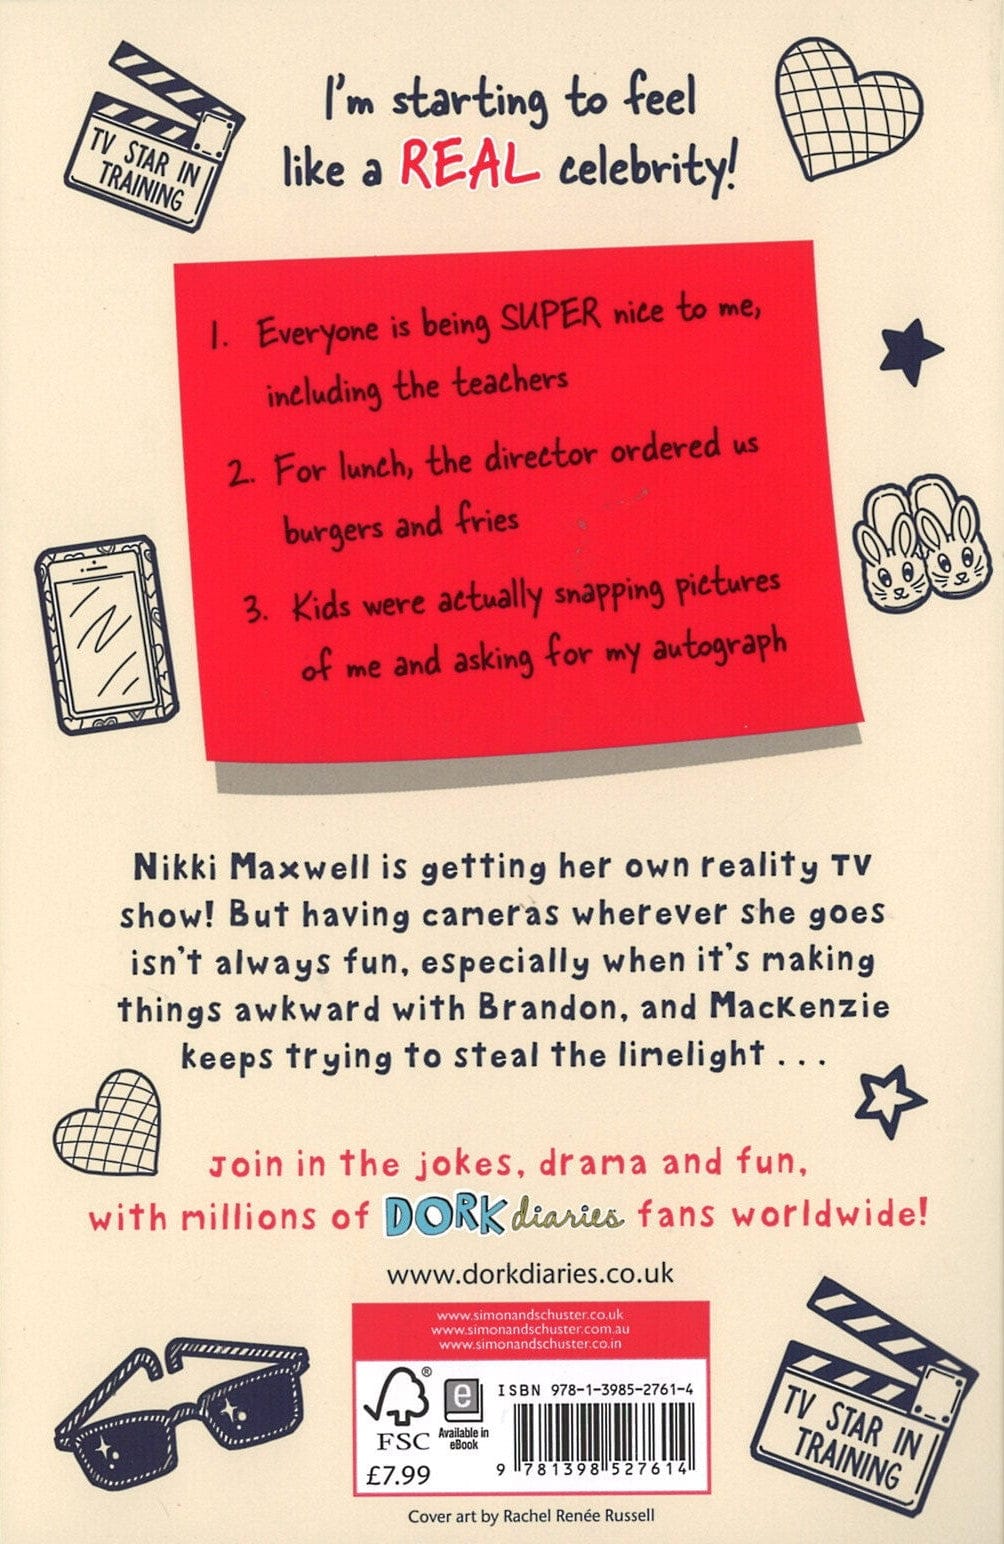 TV STAR IN
TRAINING
I'm starting to feel
like a REAL celebrity!
1. Everyone is being SUPER nice to me,
including the teachers
2. For lunch, the director ordered us
burgers and fries
3. Kids were actually snapping pictures
of me and asking for my autograph
Nikki Maxwell is getting her own reality TV
show! But having cameras wherever she goes
isn't always fun, especially when it's making
things awkward with Brandon, and MacKenzie
keeps trying to steal the limelight . . .
Join in the jokes, drama and fun,
with millions of DORK diaries fans worldwide!
www.dorkdiaries.co.uk
www.simonandschuster.co.uk
www.simonandschuster.com.au
www.simonandschuster.co.in
®
FSC
e
Available in
eBook
£7.99
ISBN 978-1-3985-2761-4
9 781398 527614
TV STAR IN
TRAINING
Cover art by Rachel Renée Russell